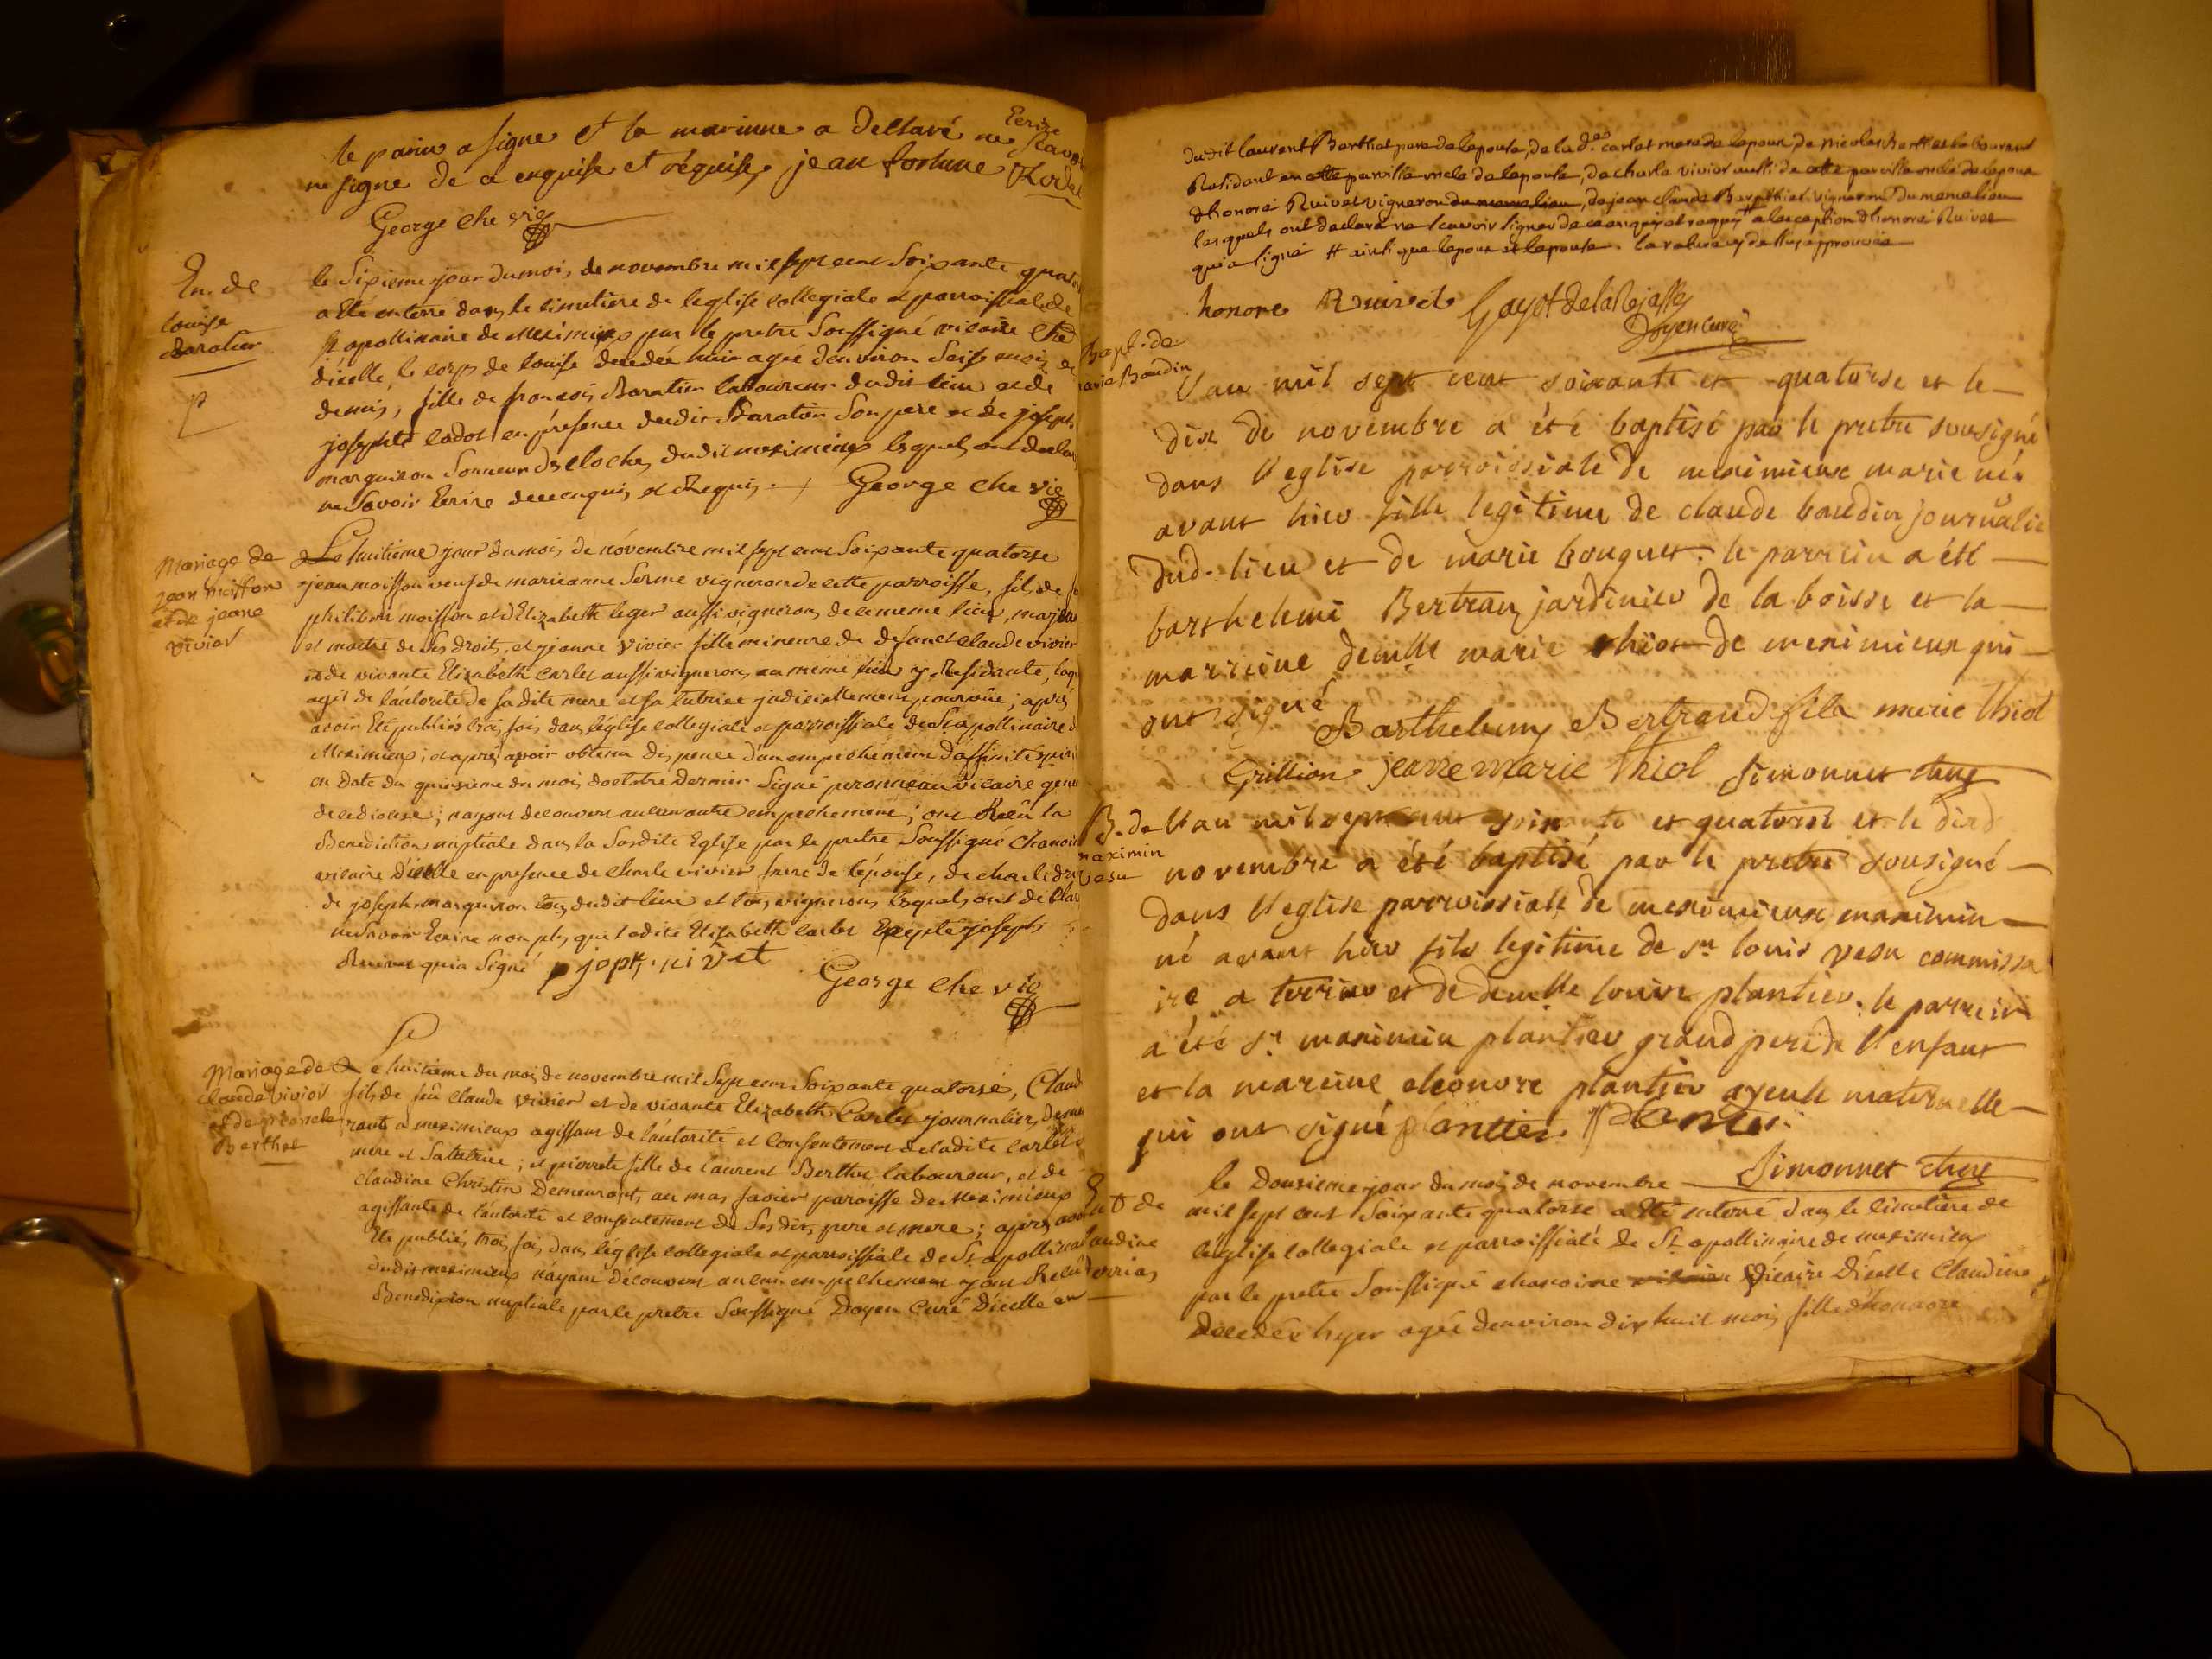 le parin a signe et la marinne a declaré ne Ecrire Scavoi
ne signe de a enquise et réquise, jean fortune Rodet
George che vic
En. de
louise
Baratier
le Sixieme jour du mois de novembre mil sept cent Soixante quator
a Eté enterré dans le cimetiere de leglise collegiale et parroissiale de
St apollinaire de Meximieux par le pretre Soussigné vicaire
dicelle, le corps de louise decedée hier agée denviron Seise mois et
demis, fille de francois Baratier laboureur dudit lieu et de
josephte cadot en présence dudit Baratier Son pere et de joseph
marguiron Sonneur de cloches dudit meximieux lesquels ont declar
ne Savoir Ecrire de ce enquis et Requis. George che vic
Mariage de
jean moisson
et de jeane
vivier
Le huitieme jour du mois de novembre mil sept cent Soixante quatorse
jean moisson veuf de marieanne Serme vigneron de cette parroisse, fils de
philibert moisson et d'Elizabeth leger aussi vignerons de ce meme lieu, majeur
et maitre de Ses droits, et jeanne vivier fille mineure de defunct claude vivier
et de vivante Elizabeth carlet aussi vignerons au meme lieu y Residante, laq
agit de l'autorité de sa dite mere et sa tutrice judiciellement pourvûe; aprés
avoir Eté publiés trois fois dans l'église collegiale et parroissiale de St apollinaire d
Meximieux; et aprés avoir obtenu dispence d'un empechement d'affinité
en date du quinsieme du mois d'octobre dernier Signé peronneau vicaire gene
de ce diocese; n'ayant decouvert aucun autre empechement; ont Reçû la
Benediction nuptiale dans la Susdite Eglise par le pretre Soussigné chanoin
vicaire dicelle en presence de charle vivier frere de l'épouse, de charle
de joseph marguiron tous dudit lieu et tous vignerons lesquels ont declar
ne Savoir Ecrire non plus que ladite Elizabeth carlet Excepté joseph
Ruivet qui a Signé joph rivet
George che vic
Mariage de
claude vivier
et de pierrete
Berthet
Le huitieme du mois de novembre mil Sept cent Soixante quatorse, Claud
fils de feû claude vivier et de vivante Elizabeth Carlet journalier, demeu
rant a meximieux agissant de l'autorité et consentement de ladite carlet
mere et Sa tutrice; et pierrete fille de laurent Berthet laboureur, et de
claudine Christin Demeurants au mas favier paroisse de Meximieux
agissante de l'autorité et consentement de Ses dits pere et mere; aprés avoir
Eté publiés trois fois dans l'église collegiale et parroissiale de St apollinai
dudit meximieux n'ayant découvert aucun empechement y ont Reçû
Benediction nuptiale par le pretre Soussigné Doyen Curé Dicelle en
dudit laurent Berthet pere de lepouse, de la de. carlet mere de lepoux, de nicolas Berthet laboureur
Residant en cette parroisse oncle de lepouse, de charle vivier aussi de cette parroisse oncle de lepoux
dhonoré Ruivet vigneron du meme lieu, de jean claude Berthet vigneron du meme lieu
lesquels ont declaré ne scauvoir signer de ce enquis et requis a lexception dhonoré Ruivet
qui a signé # ainsi que lepoux et lepouse. la rature cy dessus approuvée
honore Ruivet Gayot Delarejasse
Doyen curé
Bapt. de
marie Baudin
L'an mil sept cent soixante et quatorse et le
dix de novembre a été baptisé par le pretre sousigné
dans l'eglise parroissiale de meximieux marie née
avant hier fille legitime de claude baudin journalie
dud. lieu et de marie bouquet. le parrein a été
barthelemi Bertran jardinier de la boisse et la
marreine demlle marie thiot de meximieux qui
ont signé
Barthelemy Bertrand fila marie Thiol
Grillion jeanne marie Thiol Simonnet
B. de
maximin
vesu
L'an mil sept cent soixante et quatorse et le dix d
novembre a été baptisé par le pretre sousigné
dans l'eglise parroissiale de meximieux maximin
né avant hier fils legitime de sr louis vesu commissa
ire a terrier et de demlle louise plantier. le parrein
a été sr maximin plantier grand pere de l'enfant
et la mareine eleonore plantier ayeule maternelle
qui ont signé plantier plantier
Simonnet
le Dousieme jour du mois de novembre
mil sept cent Soixante quatorse a Eté enterré dans le cimetiere de
leglise collegiale et parroissiale de St apollinaire de meximieux
par le pretre Soussigné chanoine vicaire Dicelle Claudine
decedée hyer agée denviron dix huit mois fille d'honnore